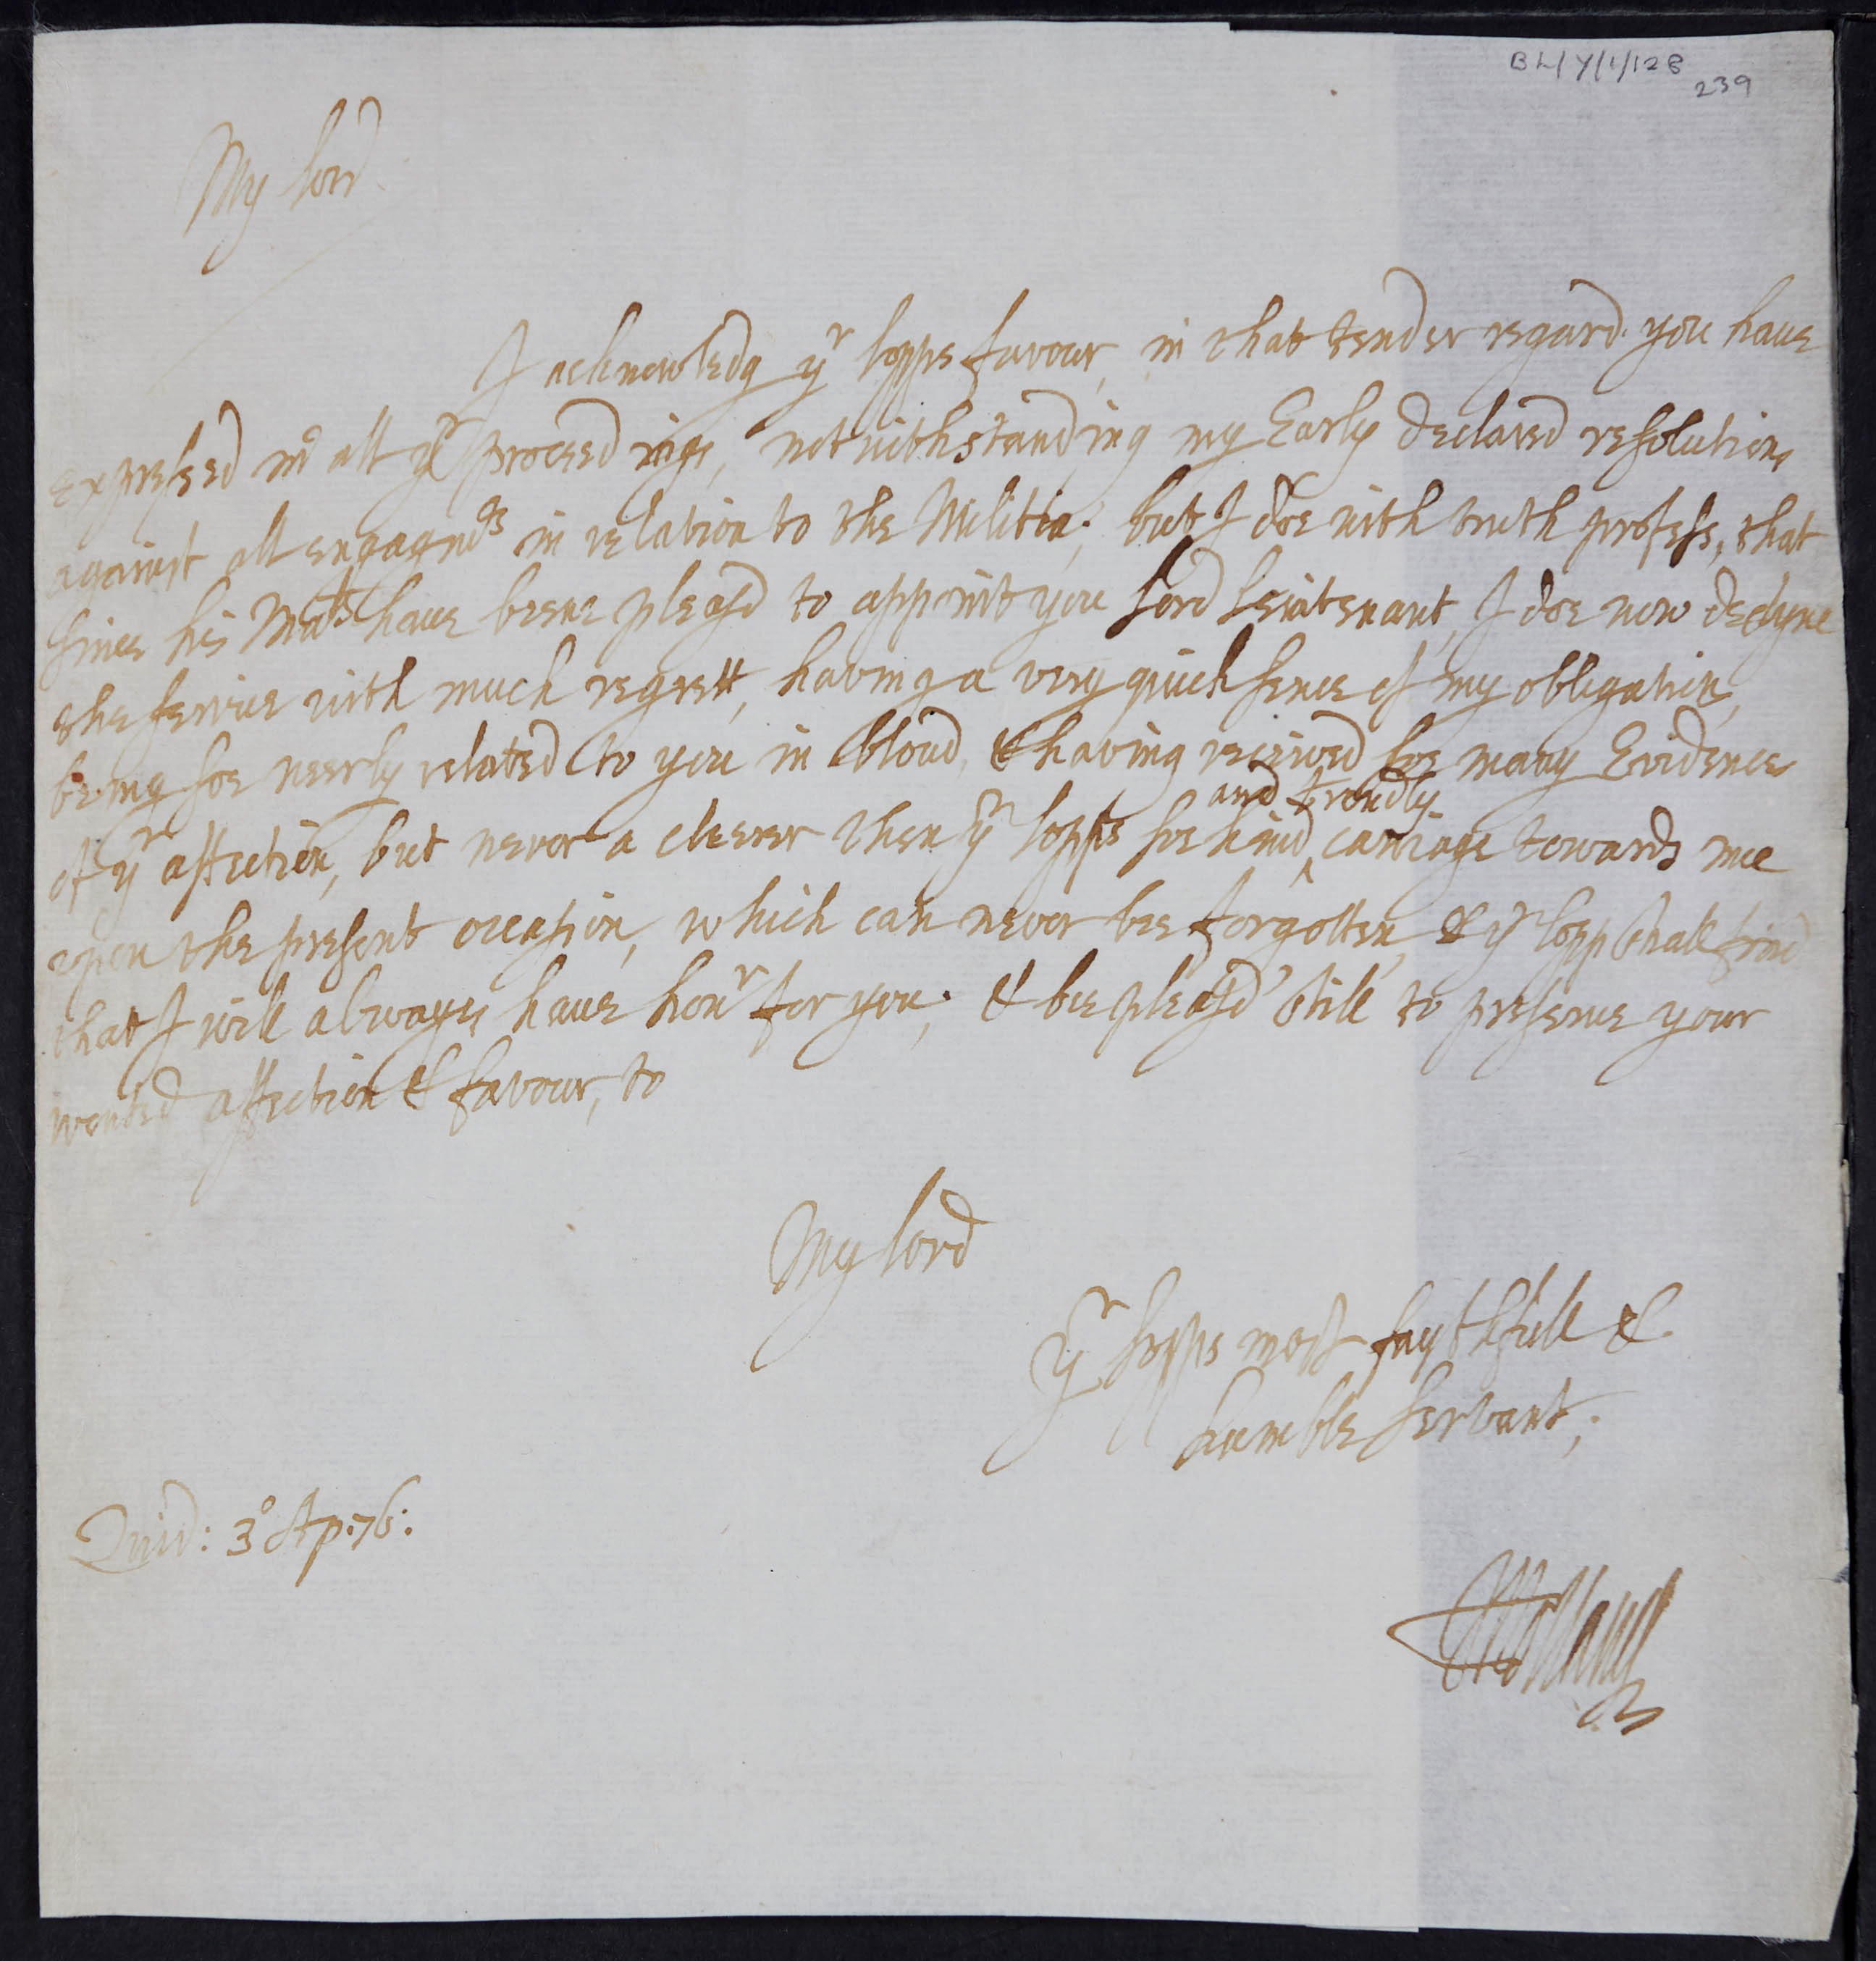 BL/Y/1/128
239
My Lord
I acknowledg yr Lopps favour, in that tender regard you have
expressed in all yr proceedings, notwithstanding my Early declared resolutions
against all engagemts in relation to the Militia; but I doe with truth profess, that
since his Matie have beene pleasd to appoint you Lord Leiutenant, I doe now declyne
the service with much regrett, having a very quick sence of my obligation,
being soe neerly related to you in bloud, & having received soe many Evidences
of yr affection, but never a cleerer then yr Lopps soe kind ^and frendly carriage towards mee
upon the present occasion, which can never bee forgotten, & yr Lopp shall find
that I will alwayes have honr for you; & bee pleasd still to preserve your
wonted affection & favour, to
My Lord
yr Lopps most faythfull &
humble servant;
3° Ap: 76: